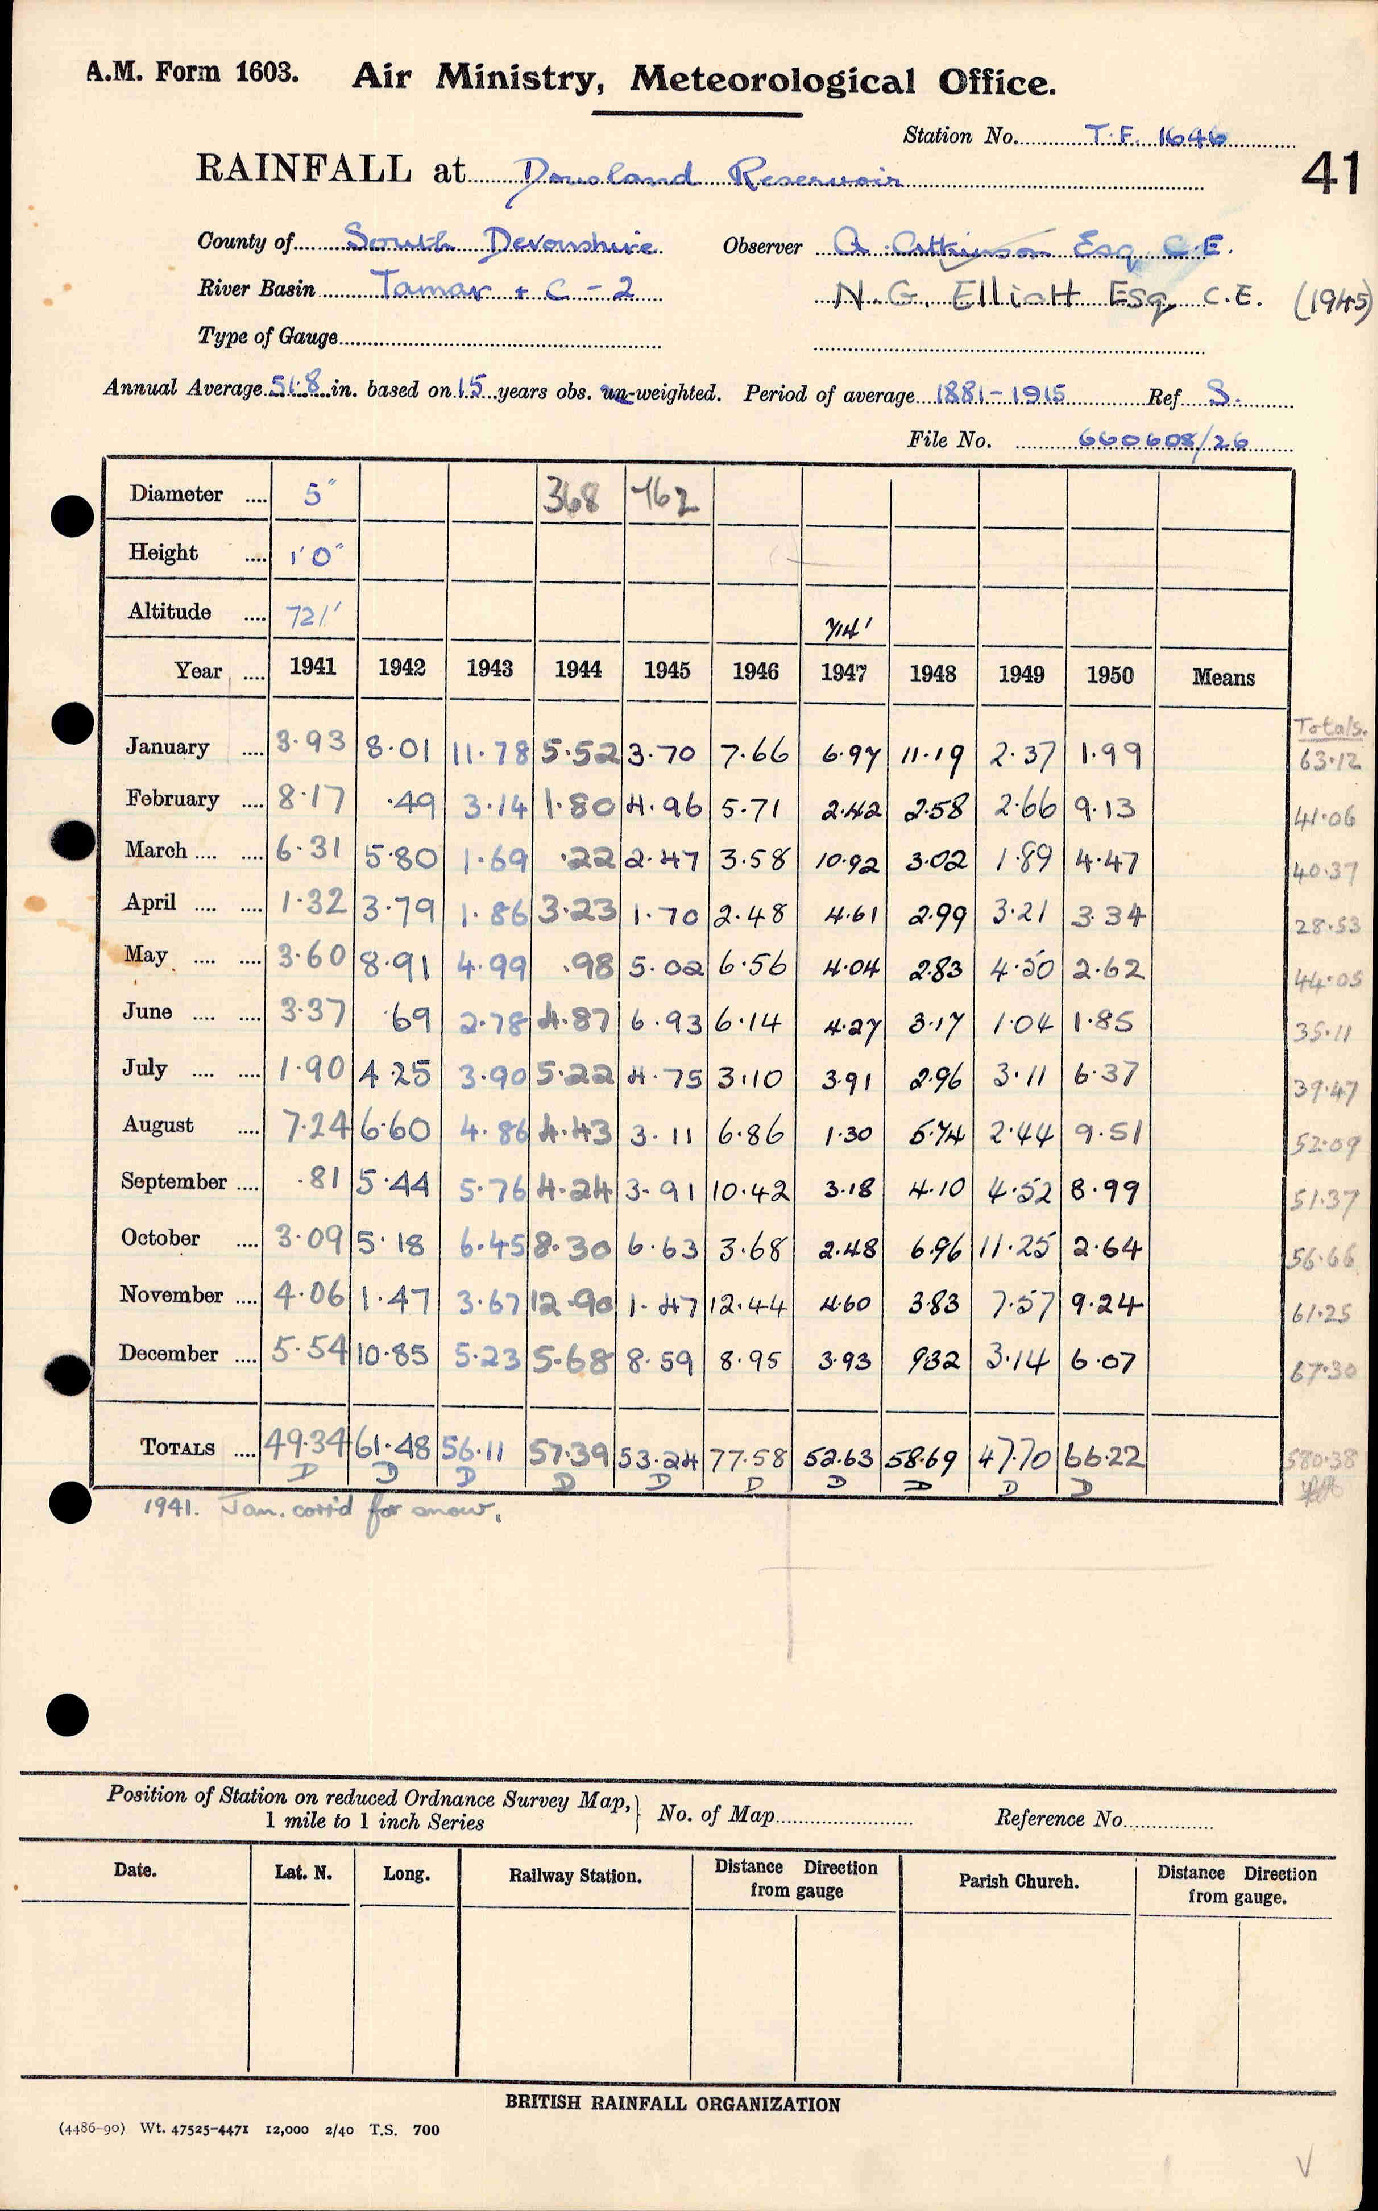 A.M. Form 1603. Air Ministry, Meteorological Office.
Station No. T.F. 1646
41
RAINFALL at Dousland Reservoir
County of South Devonshire Observer A. Atkinson Esq C.E.
River Basin Tamar + C - 2 N.G. Elliott Esq C.E. (1945)
Type of Gauge
Annual Average 51.8 in. based on 15 years obs. un-weighted. Period of average 1881-1915 Ref S.
File No. 660608/26
Diameter .... 5" 368 762
Height .... 1'0"
Altitude .... 721' 714'
Year .... 1941 1942 1943 1944 1945 1946 1947 1948 1949 1950 Means
Totals.
January .... 3.93 8.01 11.78 5.52 3.70 7.66 6.97 11.19 2.37 1.99 63.12
February .... 8.17 .49 3.14 1.80 4.96 5.71 2.42 2.58 2.66 9.13 41.06
March .... .... 6.31 5.80 1.69 .22 2.47 3.58 10.92 3.02 1.89 4.47 40.37
April .... .... 1.32 3.79 1.86 3.23 1.70 2.48 4.61 2.99 3.21 3.34 28.53
May .... .... 3.60 8.91 4.99 .98 5.02 6.56 4.04 2.83 4.50 2.62 44.05
June .... .... 3.37 .69 2.78 4.87 6.93 6.14 4.27 3.17 1.04 1.85 35.11
July .... .... 1.90 4.25 3.90 5.22 4.75 3.10 3.91 2.96 3.11 6.37 39.47
August .... 7.24 6.60 4.86 4.43 3.11 6.86 1.30 5.74 2.44 9.51 52.09
September .... .81 5.44 5.76 4.24 3.91 10.42 3.18 4.10 4.52 8.99 51.37
October .... 3.09 5.18 6.45 8.30 6.63 3.68 2.48 6.96 11.25 2.64 56.66
November .... 4.06 1.47 3.67 12.90 1.47 12.44 4.60 3.83 7.57 9.24 61.25
December .... 5.54 10.85 5.23 5.68 8.59 8.95 3.93 932 3.14 6.07 67.30
TOTALS .... 49.34 61.48 56.11 57.39 53.24 77.58 52.63 58.69 47.70 66.22 580.38
D D D D D D D D D D
1941. Jan. corr'd for snow.
Position of Station on reduced Ordnance Survey Map, } No. of Map Reference No.
1 mile to 1 inch Series
Date. Lat. N. Long. Railway Station. Distance Direction from gauge Parish Church. Distance Direction from gauge.
BRITISH RAINFALL ORGANIZATION
(4486-90) Wt. 47525-4471 12,000 2/40 T.S. 700